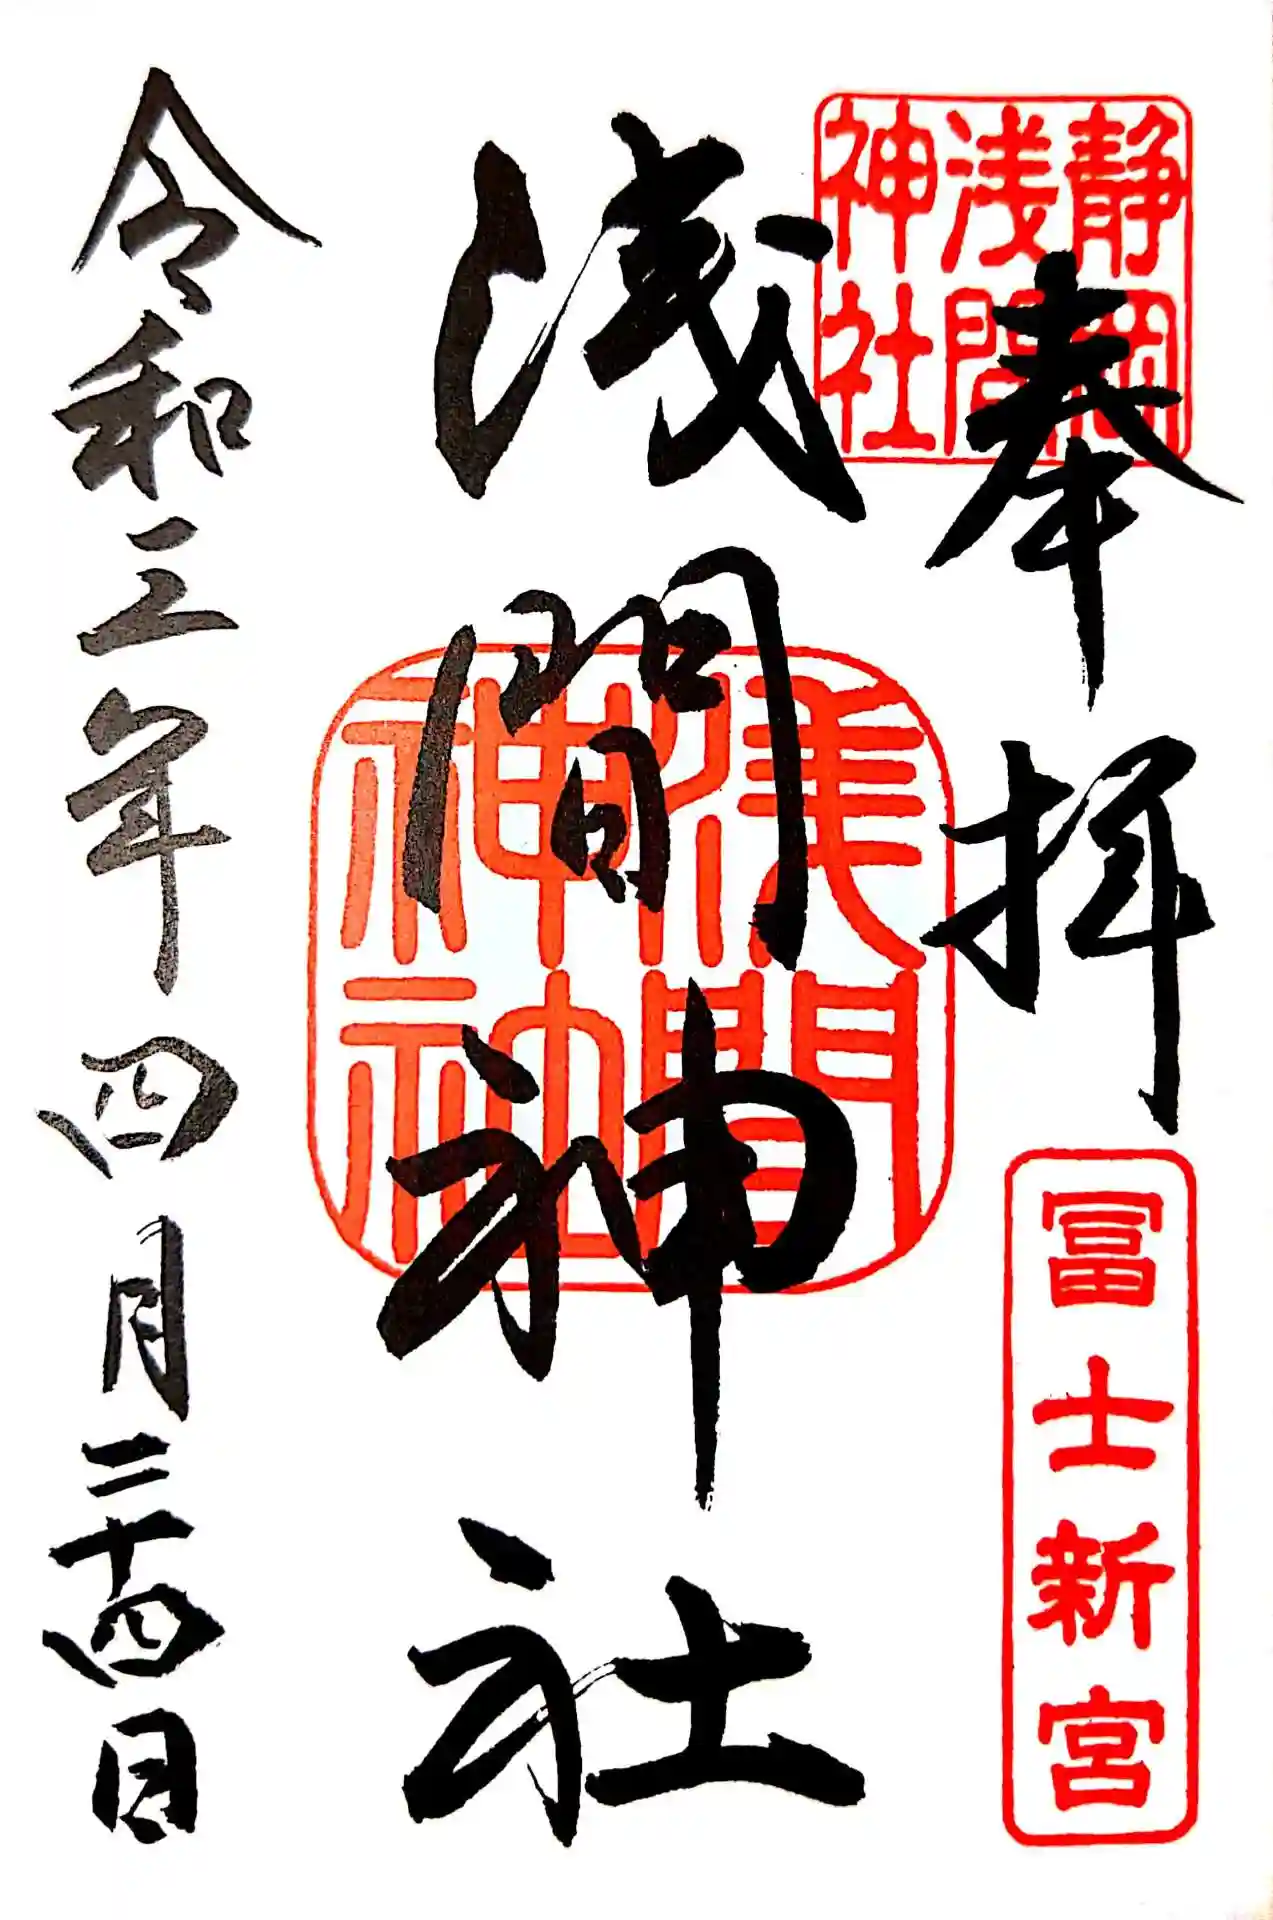 静岡
浅間
神社
奉拝
冨士新宮
浅間神社
浅間
神社
令和三年四月二十四日